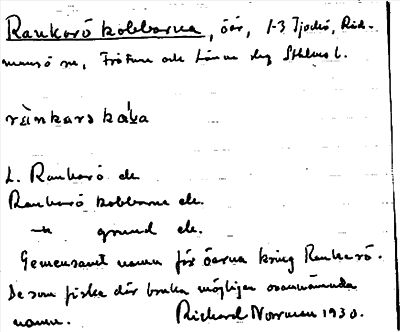 Rankarö kobbarna, öar, 1-3 Tjockö, Råd-
mansö sn, Frötuna och Länna slg Sthlms l.
rànkars kàka
L. Rankarö ek
Rankarö kobbarna ek.
–"– grund ek.
Gemensamt namn för öarna kring Rankarö.
De som fiska där bruka möjligen ovannämnda
namn. Richard Norrman 1930.